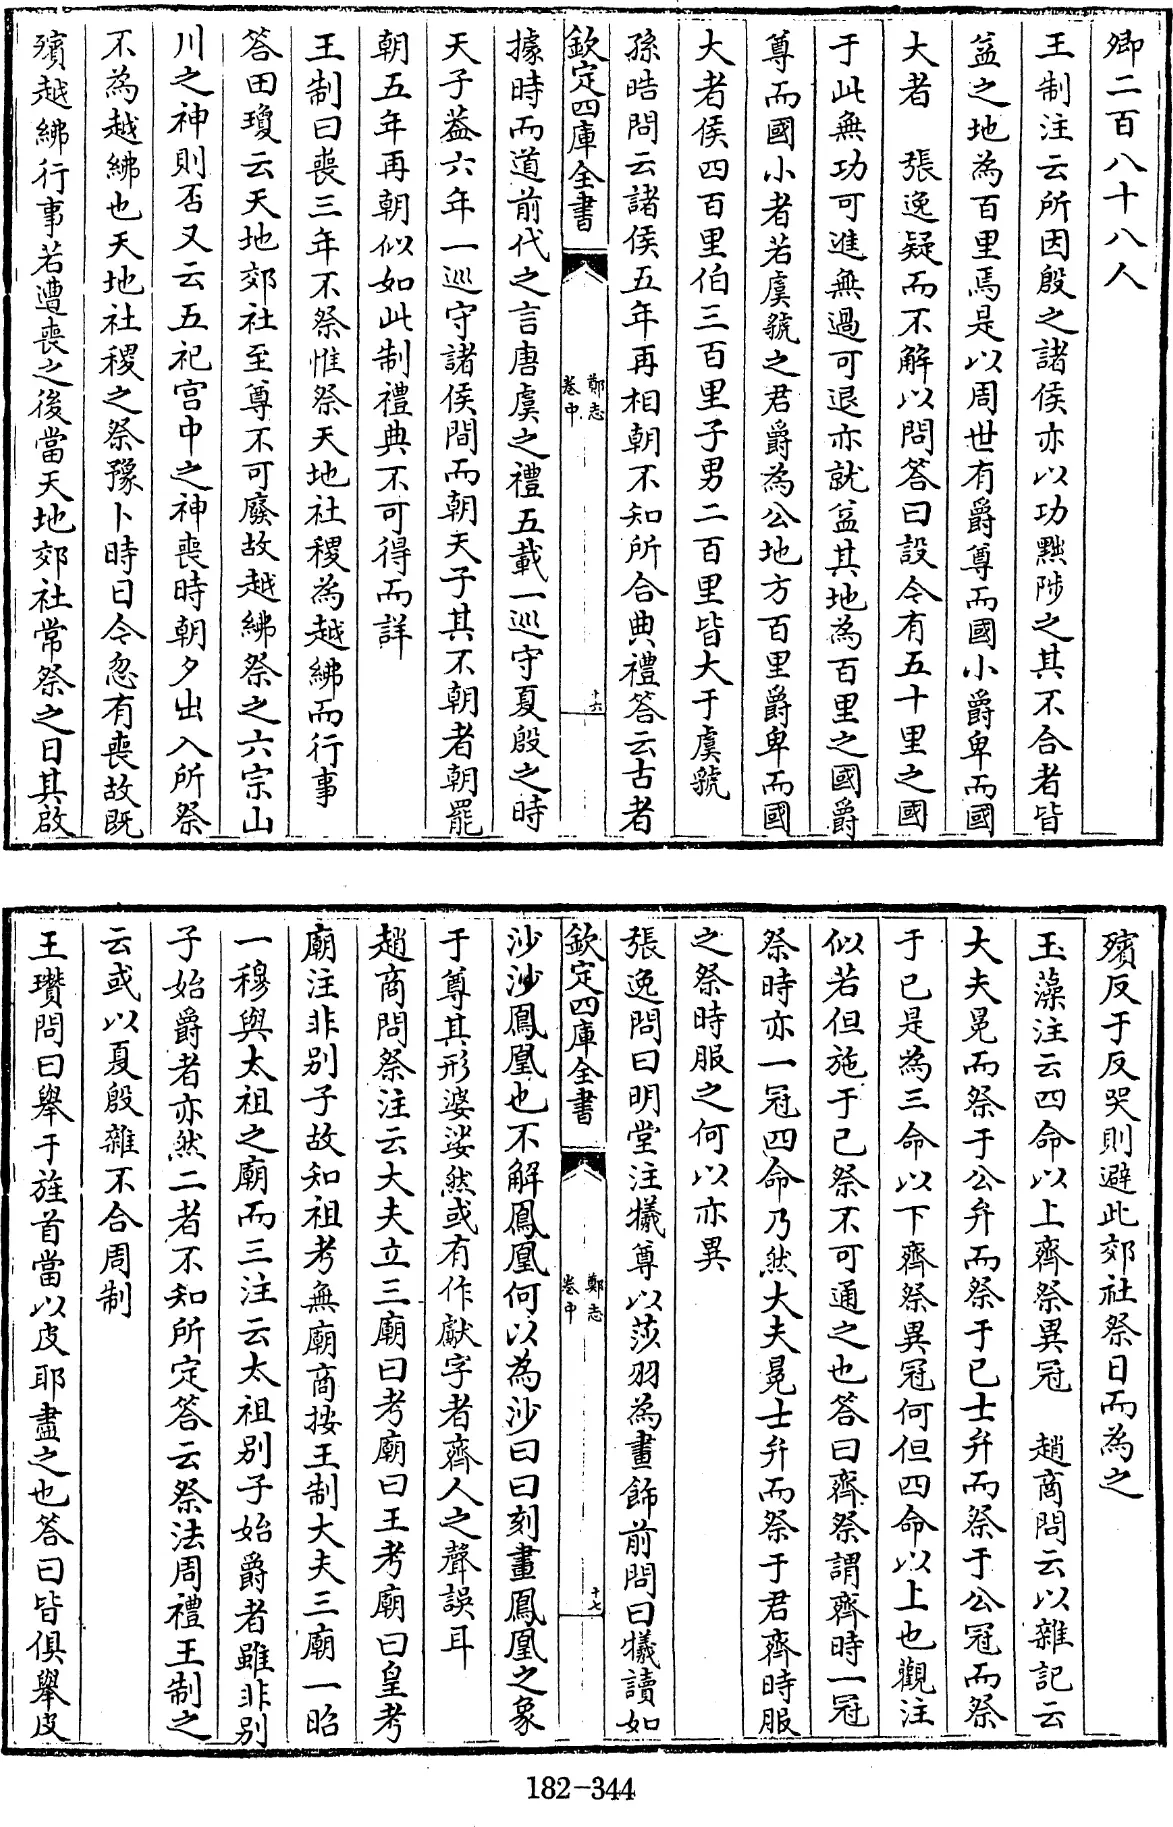 卿二百八十八人
王制注云所因殷之諸侯亦以功黜陟之其不合者皆
益之地為百里焉是以周世有爵尊而國小爵卑而國
大者　張逸疑而不解以問答曰設令有五十里之國
于此無功可進無過可退亦就益其地為百里之國爵
尊而國小者若虞虢之君爵為公地方百里爵卑而國
大者侯四百里伯三百里子男二百里皆大于虞虢
孫晧問云諸侯五年再相朝不知所合典禮答云古者
欽定四庫全書
鄭志
卷中
十六
據時而道前代之言唐虞之禮五載一巡守夏殷之時
天子蓋六年一巡守諸侯間而朝天子其不朝者朝罷
朝五年再朝似如此制禮典不可得而詳
王制曰喪三年不祭惟祭天地社稷為越紼而行事
答田瓊云天地郊社至尊不可廢故越紼祭之六宗山
川之神則否又云五祀宫中之神喪時朝夕出入所祭
不為越紼也天地社稷之祭豫卜時日今忽有喪故既
殯越紼行事若遭喪之後當天地郊社常祭之日其啟
殯反于反哭則避此郊社祭日而為之
玉藻注云四命以上齊祭異冠　趙商問云以雜記云
大夫冕而祭于公弁而祭于已士弁而祭于公冠而祭
于已是為三命以下齊祭異冠何但四命以上也觀注
似若但施于已祭不可通之也答曰齊祭謂齊時一冠
祭時亦一冠四命乃然大夫冕士弁而祭于君齊時服
之祭時服之何以亦異
張逸問曰明堂注犧尊以莎羽為畫飾前問曰犧讀如
欽定四庫全書
鄭志
卷中
十七
沙沙鳳凰也不解鳳凰何以為沙曰曰刻畫鳳凰之象
于尊其形婆娑然或有作獻字者齊人之聲誤耳
趙商問祭注云大夫立三廟曰考廟曰王考廟曰皇考
廟注非别子故知祖考無廟商按王制大夫三廟一昭
一穆與太祖之廟而三注云太祖别子始爵者雖非别
子始爵者亦然二者不知所定答云祭法周禮王制之
云或以夏殷雜不合周制
王瓚問曰舉于旌首當以皮耶盡之也答曰皆俱舉皮
182-344